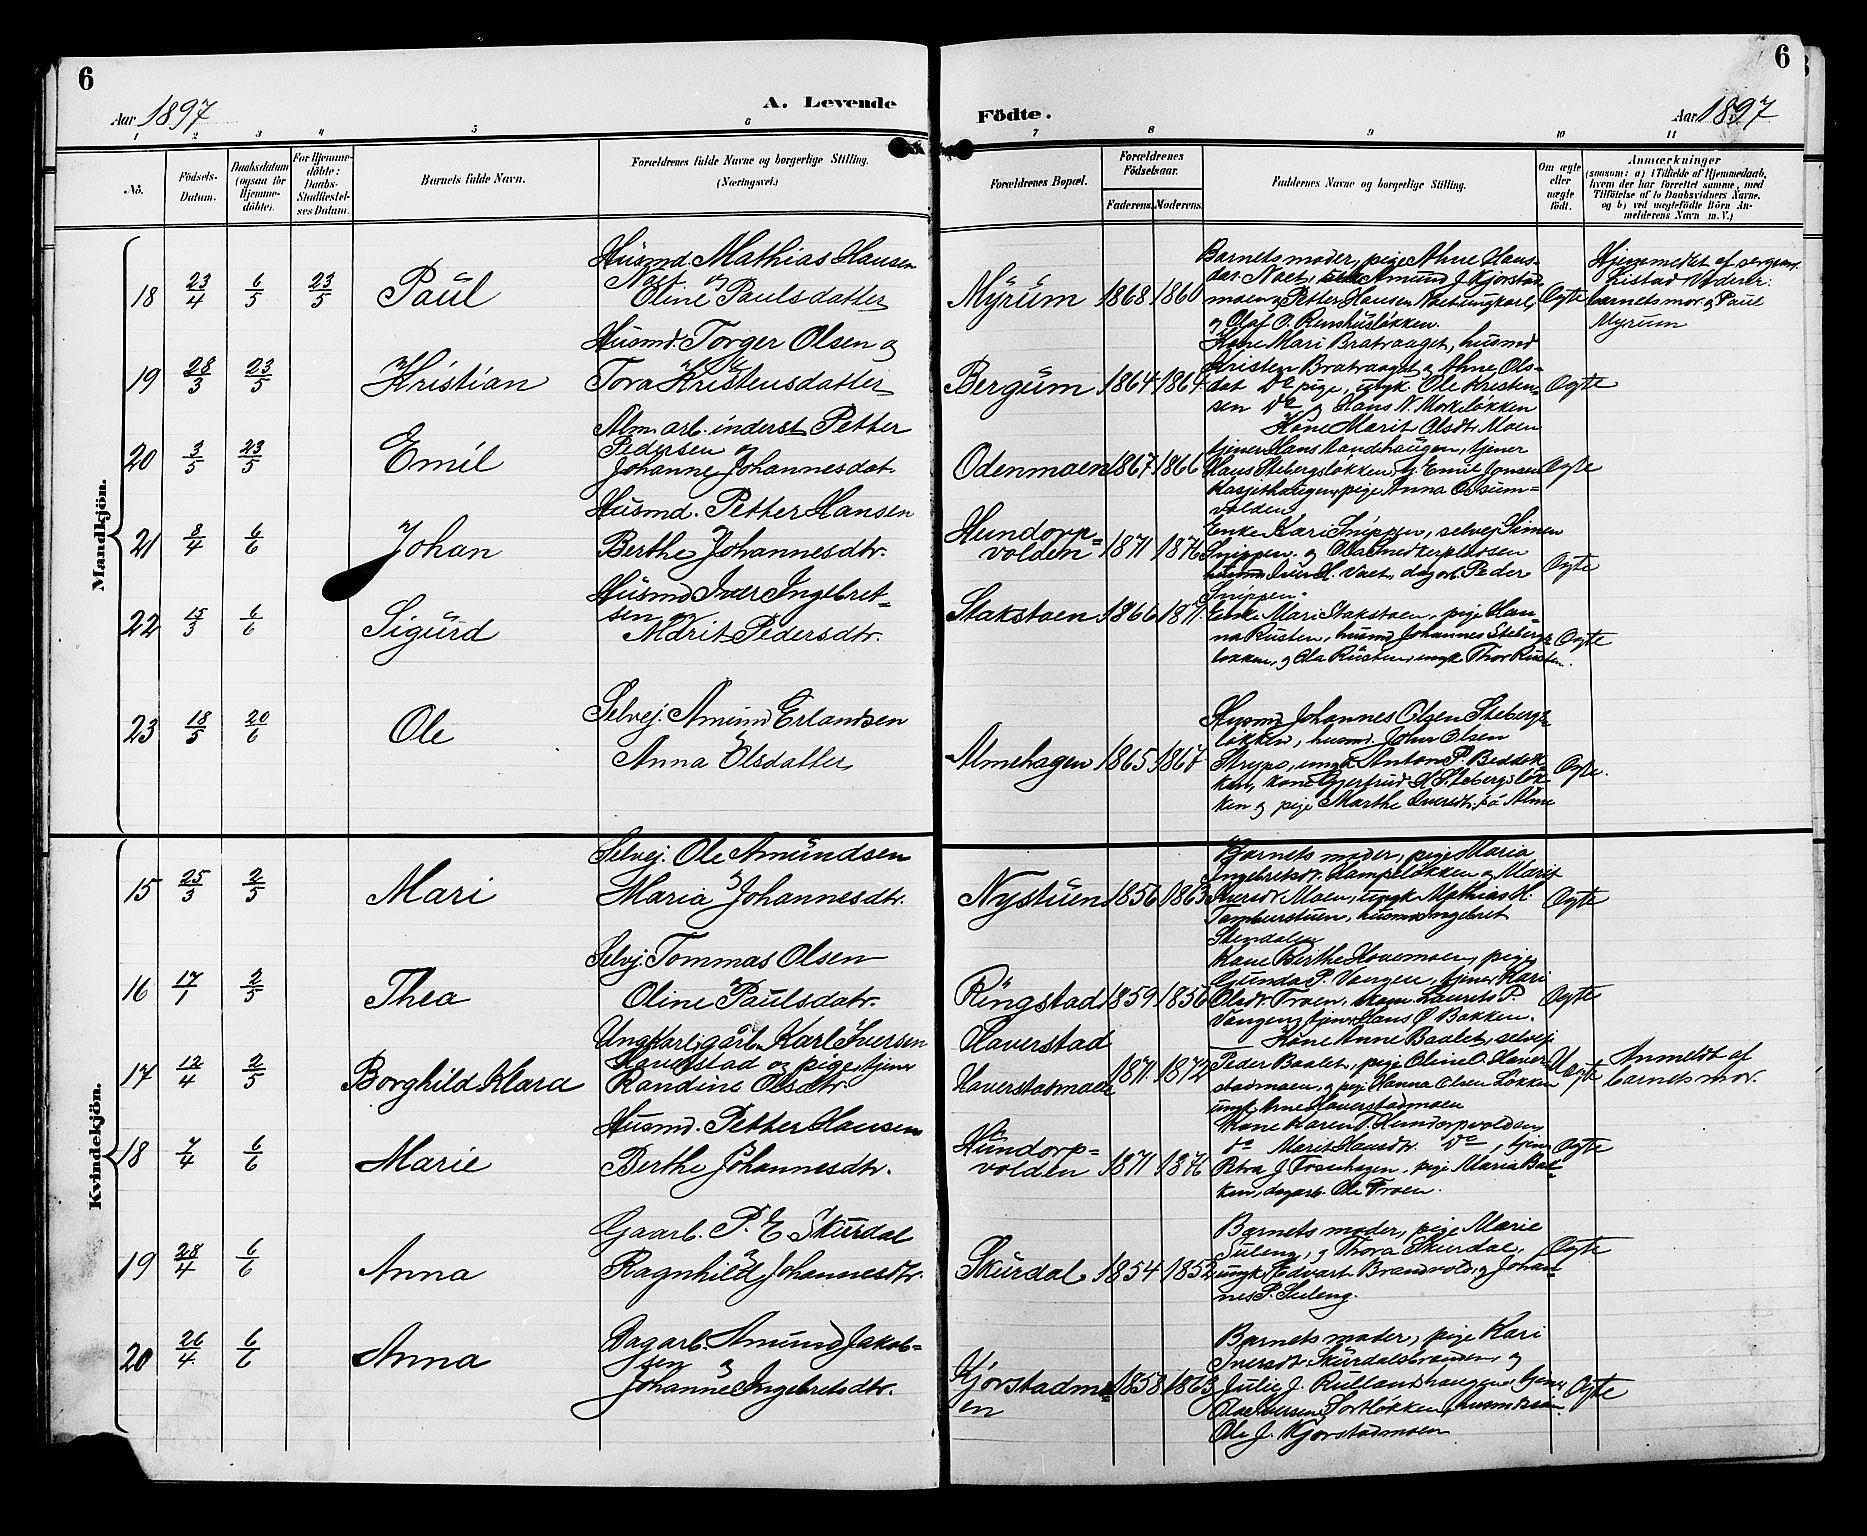 6
6
Aar 1897
A. Levende
Födte.
Aar 1897
1 2 3 4 5 6 7 8 9 10 11
No.
Födsels-
Datum.
Daabsdatum
(ogsaa för
Hjemme-
döbte).
For Hjemme-
döbte:
Daabs-
Stadfæstel-
ses Datum.
Barnets fulde Navn.
Forældrenes fulde Navne og borgerlige Stilling.
(Næringsvei.)
Forældrenes Bopæl.
Forældrenes
Födselsaar.
Faderens. Moderens.
Faddernes Navne og borgerlige Stilling.
Om ægte
eller
uægte
födt.
Anmærkninger
(saasom: a) i Tilfælde af Hjemmedaab,
hvem der har forrettet samme, med
Tilföielse af to Daabsvidners Navne,
og b) ved uægtefödte Börn An-
melderens Navn m. V.)
Mandkjön.
18 23/4 6/5 23/5 Paul
Husmd. Mathias Hansen
Noet og
Oline Paulsdatter
Myrum 1868 1860
Barnets moder, pige Ahne Hans-
dat. Noet, Amund J. Kjorstad
moen, Petter Hansen Noet ungkarl,
og Olaf O. Renshusløkken.
Ægte
Hjemmedøbt af
barnets mor og Paul
Myrum
19 28/3 23/5 Kristian
Husmd. Torger Olsen og
Tora Kristensdatter
Bergum 1864 1864
Kone Mari Bratraaget, husmd
Kristen Bratraaget, Ahne Ols-
dat Do pige, ungk. Ole Kristen-
sen Do og Hans N. Morkeløkken
Ægte
20 3/5 23/5 Emil
Alm. arb. inderst Petter
Pedersen og
Johanne Johannesdat.
Odenmoen 1867 1866
Kone Marit Olsdt. Moen
tjener Hans Sandehaugen, tjener
Hans Stebergsløkken, tj. Emil Jonsen
pige Anna
volden
Ægte
21 8/4 6/6 Johan
Husmd. Petter Hansen
Berthe Johannesdtr.
Hundorp-
volden 1871 1876
Enke Kari Snippen, selvej Simen
Snippen, og Ola
husmd Iver H. Voet, dagarb. Peder
Snippen.
Ægte
22 15/3 6/6 Sigurd
Husmd Iver Ingebret-
sen og
Marit Pedersdtr.
Stakstoen 1866 1871.
Enke Mari Stakstoen, pige Han-
na Rusten, husmd Johannes Steberg-
løkken, og Ola Rusten, ungk Thor Rusten.
Ægte
23 18/5 20/6 Ole
Selvej. Amund Erlandsen
Anna Olsdatter
Almehagen 1865 1867
Husmd Johannes Olsen Stebergs-
løkken, husmd. Johan Olsen
Strype, ungk Anton P. Bedsok-
ken, kone Gjertrud H. Stebergsløk-
ken og pige Marthe Iversdt. på Alme
Ægte.
Kvindekjön.
15 25/3 2/5 Mari
Selvej. Ole Amundsen
Maria Johannesdtr.
Nystuen 1856 1863
Barnets moder, pige Maria
Ingebretsdt. Kampeløkken og Marit
Iversdt. Moen, ungk Mathias H.
Tamburstuen, husmd Ingebret
Stendalen
Ægte
16 17/1 2/5 Thea
Selvj. Tommas Olsen
Oline Paulsdatr.
Ringstad 1859 1856
Kone Berthe Hovemoen, pige
Gunda P. Vangen, tjener Kari
Olsdt. Troen, Laurits P.
Vangen, tjener Hans Ø Bakken.
Ægte
17 12/4 2/5 Borghild Klara
Ungkarl, gårb. Karl Iversen
Haverstad og pige, tjener
Randine Olsdtr
Haverstad
Haverstadmoen 1871 1872
Kone Anne Baalet, selvej
Peder Baalet, pige Oline O. Haver-
stadmoen, og pige Hanna Olsen Løkken
ungk. Arne Haverstadmoen
Uægte
Anmeldt af
barnets mor.
18 7/4 6/6 Marie
Husmd. Petter Hansen
Berthe Johannesdtr.
Hundorp-
volden 1871 1876
Kone Karen P. Hundorpvolden,
do Marit Hansdtr. Do, tjener
Petra J. Fossehagen, pige Maria Bak-
ken, dagarb. Ole Troen.
Ægte
19 28/4 6/6 Anna
Gaarb. P. E. Skurdal
Ragnhild Johannesdtr.
Skurdal 1854 1852
Barnets moder, pige Marie
Suleng, og Thora Skurdal,
ungk Edvart Brandvold, og Johan-
nes P. Suleng.
Ægte
20 26/4 6/6 Anna
Dagarb. Amund Jakob-
sen og
Johanne Ingebretsdtr.
Kjorstadmo-
en 1858 1863
Barnets moder, pige Kari
Iversdt Skurdalsbrænden, og
Julie J. Rullandshaugen, tjener
Ole Iversen Sortløkken, husmdssøn
Ole J. Kjorstadmoen
Ægte